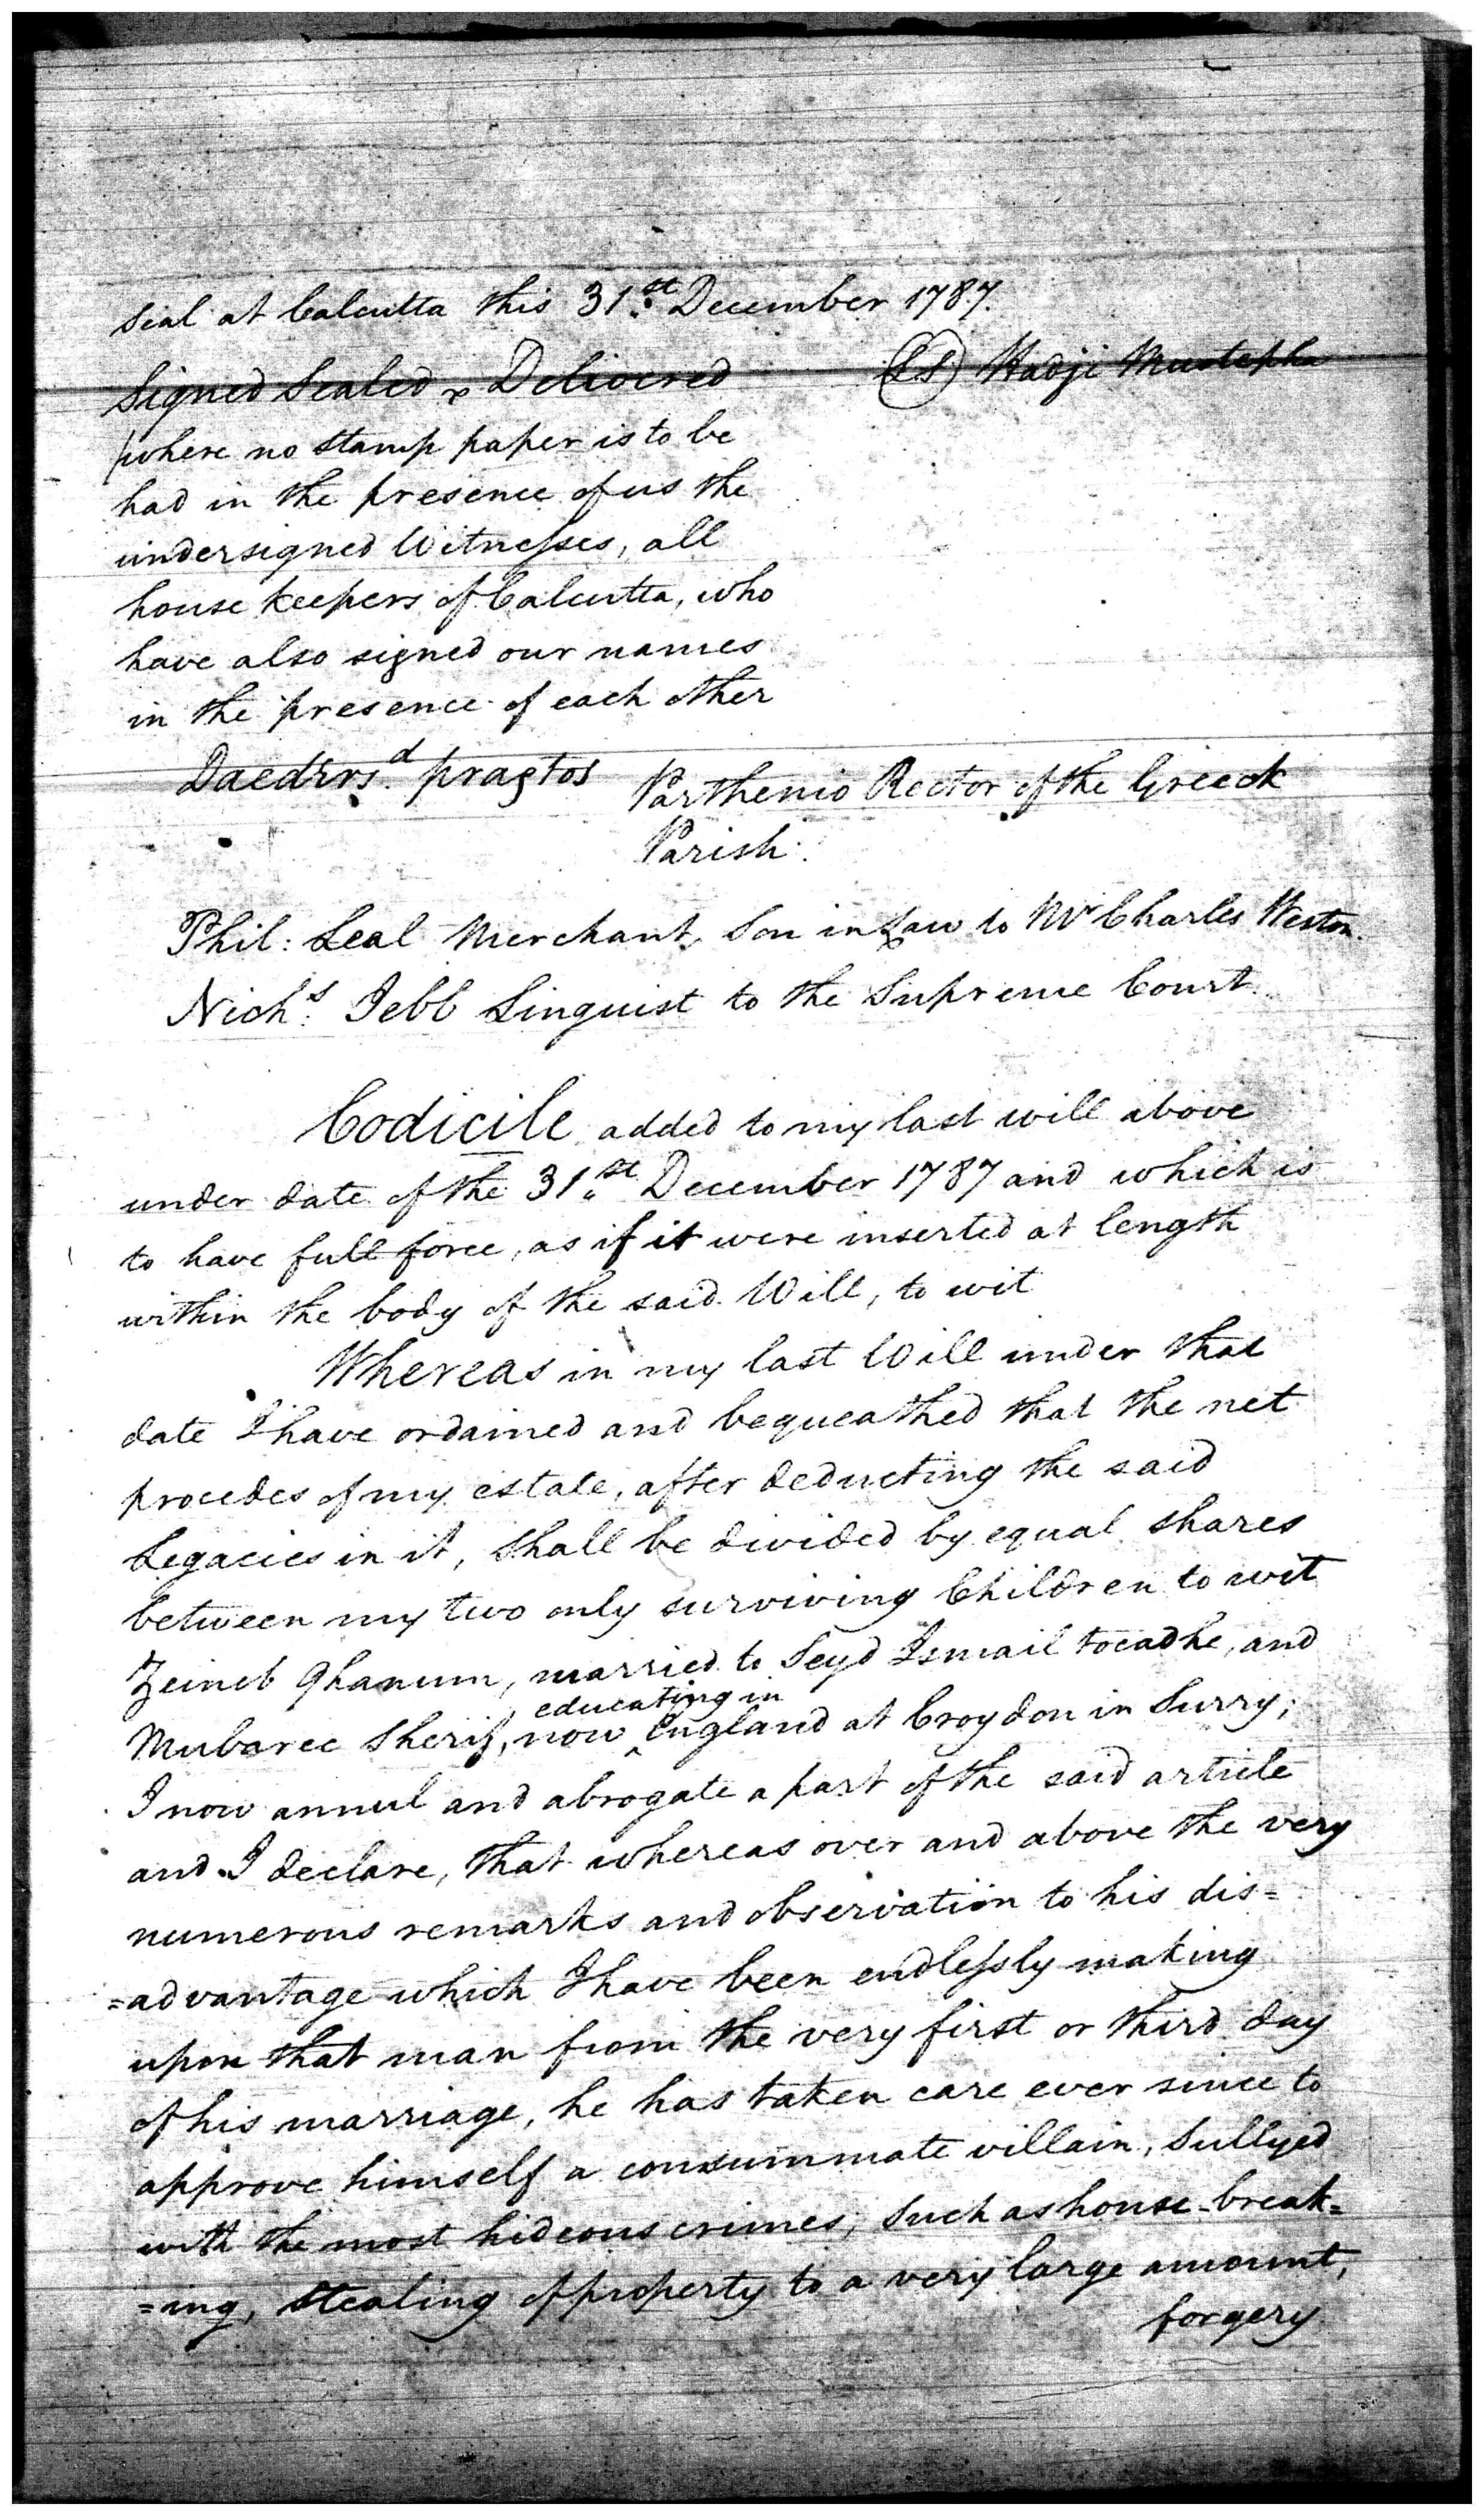 seal at Calcutta this 31st December 1787.
Signed Sealed & Delivered (LS) Hadji Mustapha
where no stamp paper is to be
had in the presence of us the
undersigned Witnesses, all
house keepers of Calcutta, who
have also signed our names
in the presence of each other
Parthenio Rector of the Greeck
Parish.
Phil: Leal Merchant, Son in Law to Mr Charles Weston.
Nichs. Jebb Linguist to the Supreme Court.
Codicile added to my last will above
under date of the 31st December 1787 and which is
to have full force, as if it were inserted at length
within the body of the said Will, to wit
Whereas in my last Will under that
date I have ordained and bequeathed that the net
procedes of my estate, after deducting the said
Legacies in it, shall be divided by equal shares
between my two only surviving Children to wit
Zeineb Ghanum, married to Seyd Ismail tocadhe, and
educating in
Mubarec Sherif, now ^ England at Croydon in Surry;
I now annul and abrogate a part of the said article
and I declare, that whereas over and above the very
numerous remarks and observation to his dis=
=advantage which I have been endlessly making
upon that man from the very first or third day
of his marriage, he has taken care ever since to
approve himself a consummate villain, Sullyed
with the most hideous crimes, such as house-break=
=ing, stealing of property to a very large amount,
forgery